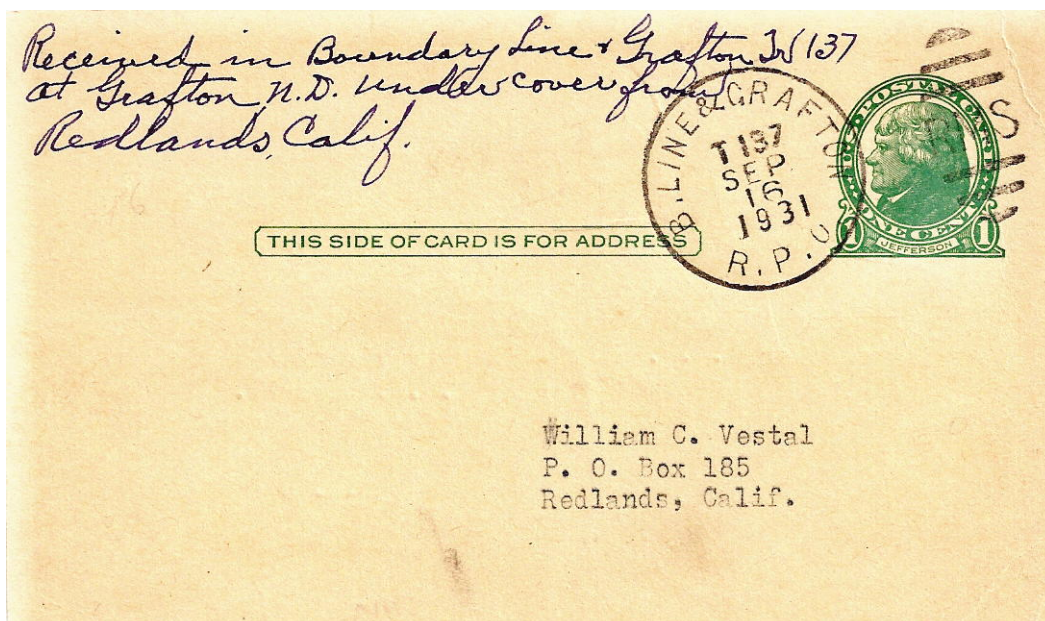 Received in Boundary Line & Grafton Tr 137
at Grafton, N.D. under cover from
Redlands, Calif.
B. LINE & GRAFTON
T 137
SEP
16
1931
R.P.O
U.S. POSTAL CARD
ONE CENT
1 JEFFERSON 1
THIS SIDE OF CARD IS FOR ADDRESS
William C. Vestal
P. O. Box 185
Redlands, Calif.